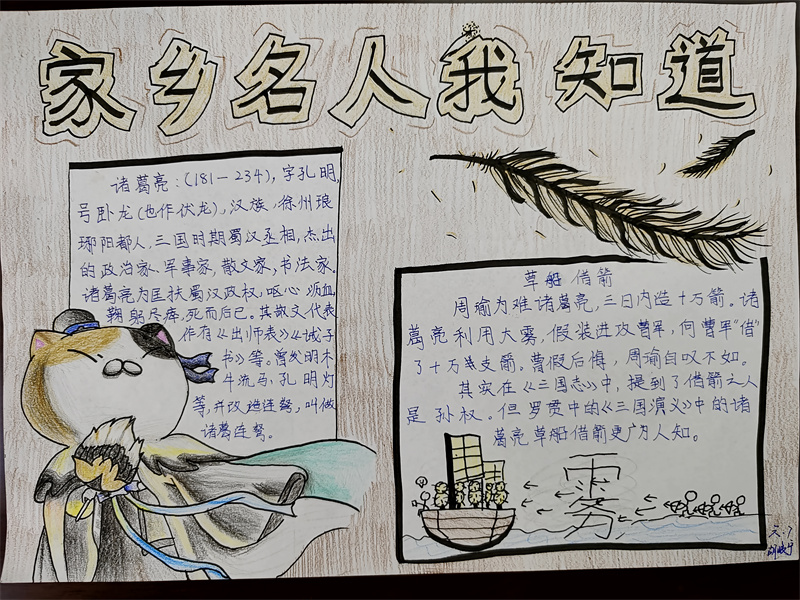 家乡名人我知道
诸葛亮:(181-234),字孔明,
号卧龙(也作伏龙),汉族,徐州琅
琊阳都人,三国时期蜀汉丞相,杰出
的政治家、军事家,散文家,书法家。
诸葛亮为匡扶蜀汉政权,呕心沥血,
鞠躬尽瘁,死而后已。其散文代表
作有《出师表》《诫子
书》等。曾发明木
牛流马、孔明灯
等,并改造连弩,叫做
诸葛连弩。
草船借箭
周瑜为难诸葛亮,三日内造十万箭。诸
葛亮利用大雾,假装进攻曹军,向曹军"借"
了十万多支箭。曹假后悔,周瑜自叹不如。
其实在《三国志》中,提到了借箭之人
是孙权。但罗贯中的《三国演义》中的诸
葛亮草船借箭更广为人知。
雾